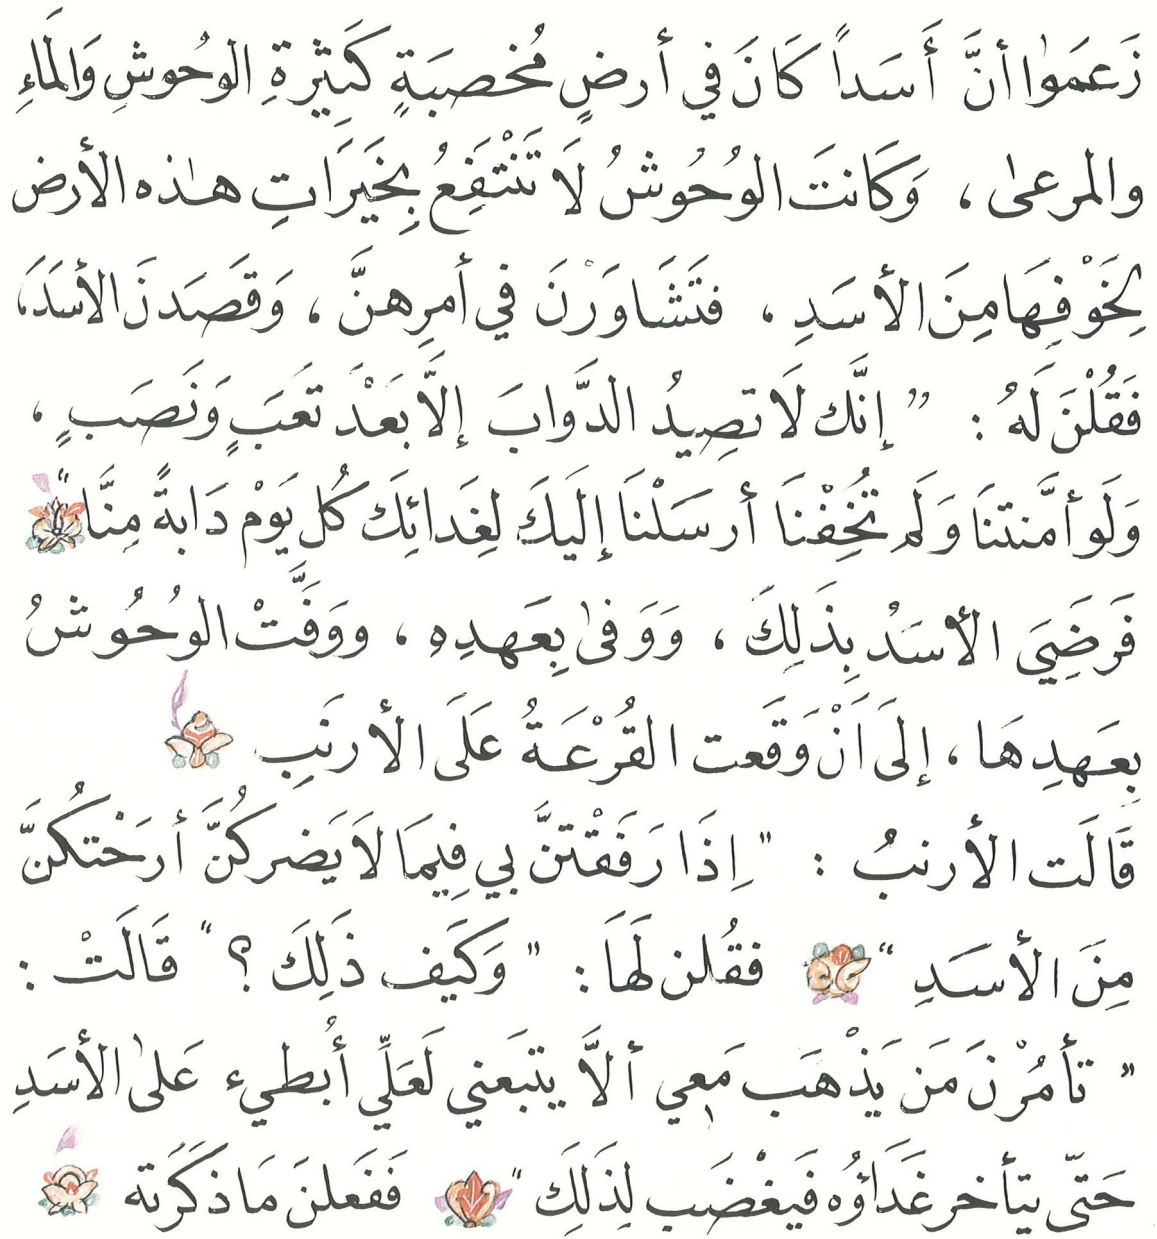 زَعَمَوا أنَّ أَسَداً كَانَ في أرضٍ مُخصبَةٍ كَثِيرةِ الوحُوشِ وَالمَاءِ
والمرعىٰ، وَكَانتَ الوُحُوشُ لَا تَنْتَفِعُ بِخَيَرَاتِ هٰذه الأرض
لِخَوْفِهَا مِنَ الأسَدِ، فتَشَاوَرْنَ في أمرِهنَّ، وَقَصَدنَ الأسَدَ،
فَقُلْنَ لَهُ : " إنَّك لَا تصِيدُ الدَّوابَ إلَّا بَعَدْ تَعَبٍ وَنَصَبٍ،
وَلَو أمَّنتنَا وَلَم تُخِفْنَا أرسَلْنَا إليَكَ لغِدَائِكَ كُل يَوْم دَابةً مِنَّا"
فَرَضِيَ الأسَدُ بِذَلِكَ، وَوَفىٰ بِعَهدِه، ووَفَّتْ الوُحُوشُ
بِعَهدِهَا، إلىَ اَنْ وَقَعت القُرْعَةُ عَلَى الأرنَبِ
قَالَت الأرنبُ : " إِذَا رَفَقْتنَّ بي فِيمَا لاَ يَضركُنَّ أرَحْتكُنَّ
مِنَ الأسَدِ " فقُلن لَهَا : " وَكَيَف ذَلِكَ؟ " قَالَتْ :
" تأمُرْنَ مَن يَذْهَب مَعِي ألَّا يتبَعني لَعَلِّي أُبطيء عَلىٰ الأسَدِ
حَتّى يتأخر غَدَاؤُه فَيَغْضَب لِذَلِكَ " فَفَعلنَ مَا ذكَرَته